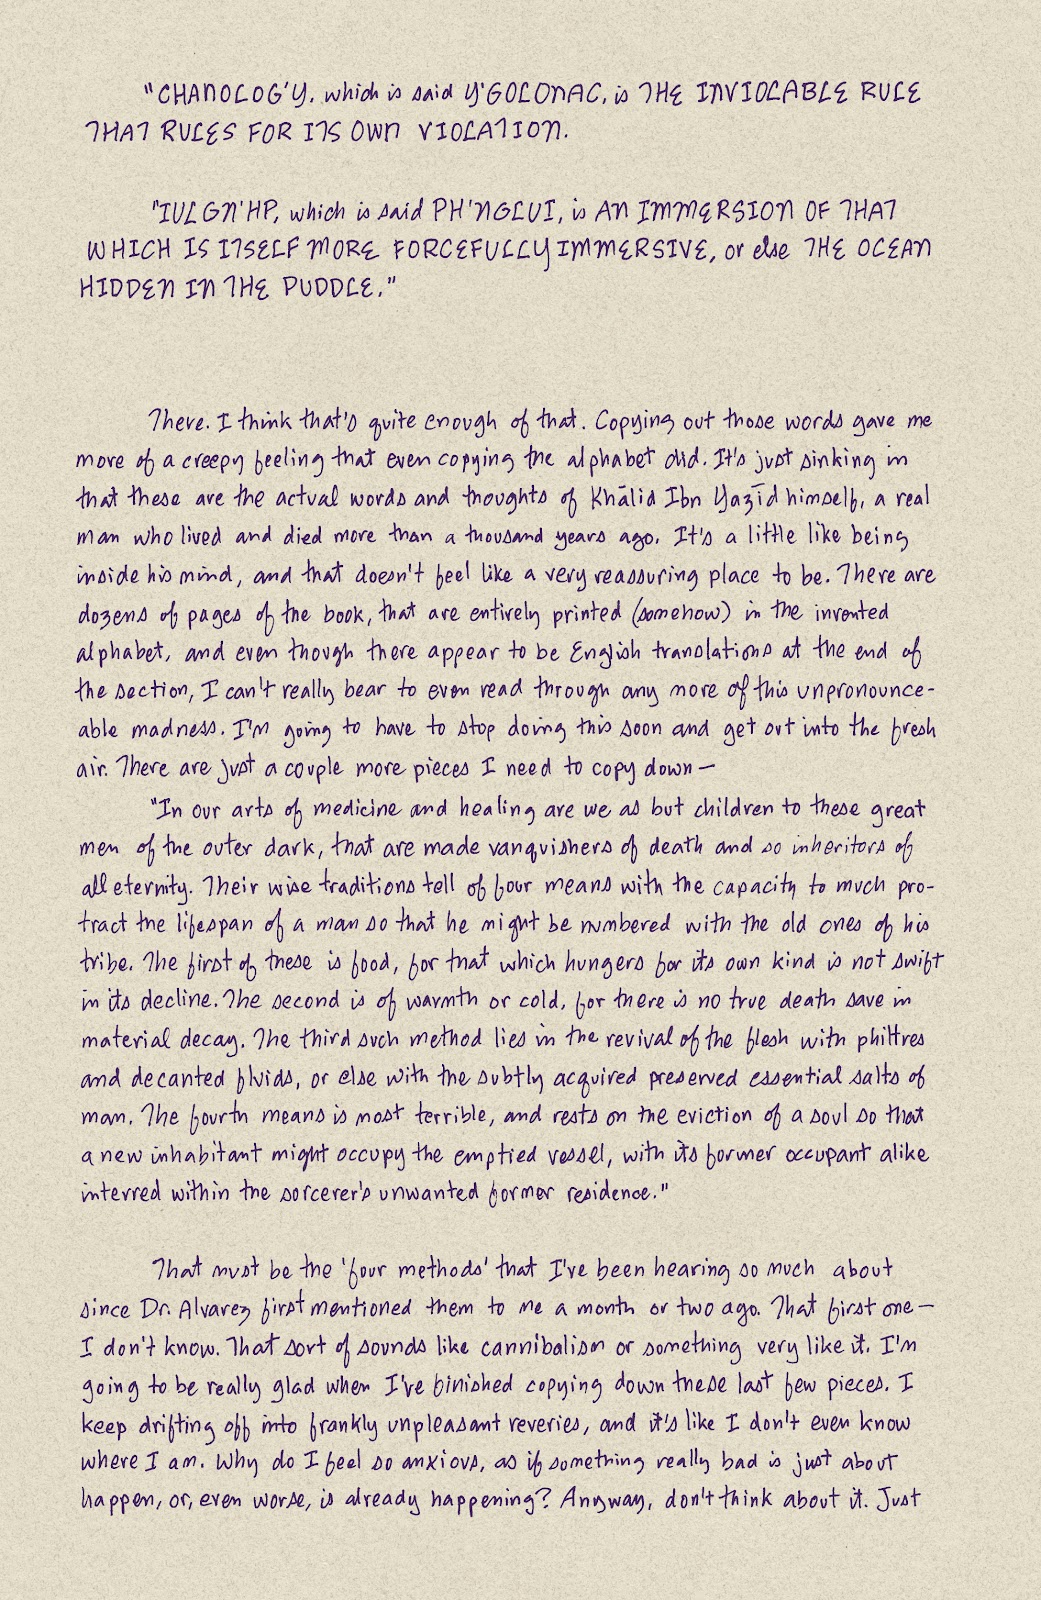 "CHANOLOG'Y, which is said Y'GOLONAC, is THE INVIOLABLE RULE
THAT RULES FOR ITS OWN VIOLATION.
"IULGN'HP, which is said PH'NGLUI, is AN IMMERSION OF THAT
WHICH IS ITSELF MORE FORCEFULLY IMMERSIVE, or else THE OCEAN
HIDDEN IN THE PUDDLE."
There. I think that's quite enough of that. Copying out those words gave me
more of a creepy feeling that even copying the alphabet did. It's just sinking in
that these are the actual words and thoughts of Khālid Ibn Yazīd himself, a real
man who lived and died more than a thousand years ago. It's a little like being
inside his mind, and that doesn't feel like a very reassuring place to be. There are
dozens of pages of the book, that are entirely printed (somehow) in the invented
alphabet, and even though there appear to be English translations at the end of
the section, I can't really bear to even read through any more of this unpronounce-
able madness. I'm going to have to stop doing this soon and get out into the fresh
air. There are just a couple more pieces I need to copy down—
"In our arts of medicine and healing are we as but children to these great
men of the outer dark, that are made vanquishers of death and so inheritors of
all eternity. Their wise traditions tell of four means with the capacity to much pro-
tract the lifespan of a man so that he might be numbered with the old ones of his
tribe. The first of these is food, for that which hungers for its own kind is not swift
in its decline. The second is of warmth or cold, for there is no true death save in
material decay. The third such method lies in the revival of the flesh with philtres
and decanted fluids, or else with the subtly acquired preserved essential salts of
man. The fourth means is most terrible, and rests on the eviction of a soul so that
a new inhabitant might occupy the emptied vessel, with its former occupant alike
interred within the sorcerer's unwanted former residence."
That must be the 'four methods' that I've been hearing so much about
since Dr. Alvarez first mentioned them to me a month or two ago. That first one—
I don't know. That sort of sounds like cannibalism or something very like it. I'm
going to be really glad when I've finished copying down these last few pieces. I
keep drifting off into frankly unpleasant reveries, and it's like I don't even know
where I am. Why do I feel so anxious, as if something really bad is just about
happen, or, even worse, is already happening? Anyway, don't think about it. Just